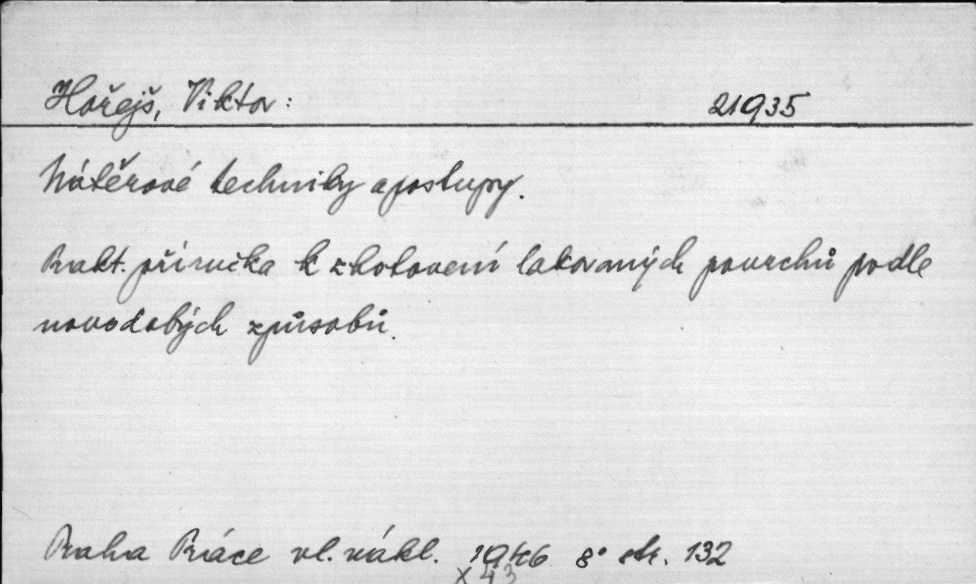 Hořejš, Viktor: 21935
Nátěrové techniky a postupy.
Prakt. příručka k zhotovení lakovaných povrchů podle
novodobých způsobů.
Praha Práce vl. nákl. 1946 8° str. 132
x 43